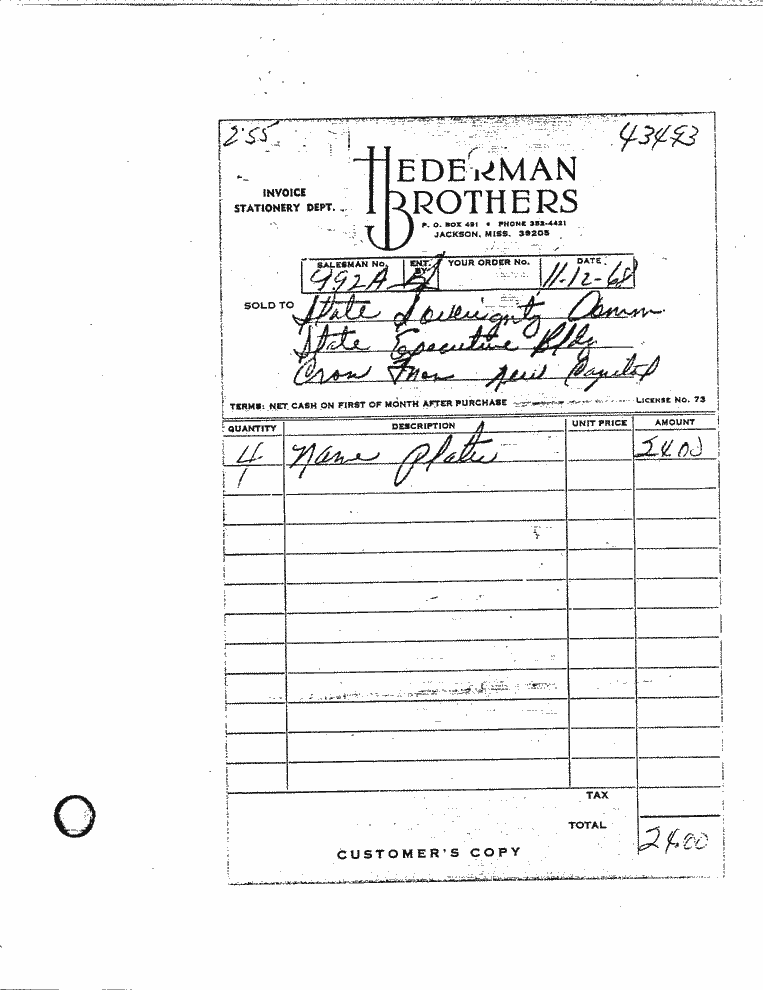 2:55 43493
HEDERMAN
BROTHERS
INVOICE
STATIONERY DEPT.
P. O. BOX 491 • PHONE 352-4421
JACKSON, MISS. 39205
SALESMAN No. ENT. BY YOUR ORDER No. DATE
992A 11-12-68
SOLD TO State Sovereignty Comm
State Executive Bldg
Cross From New Capitol
TERMS: NET CASH ON FIRST OF MONTH AFTER PURCHASE LICENSE No. 73
QUANTITY DESCRIPTION UNIT PRICE AMOUNT
4 Name plates 24.00
TAX
TOTAL 24.00
CUSTOMER'S COPY